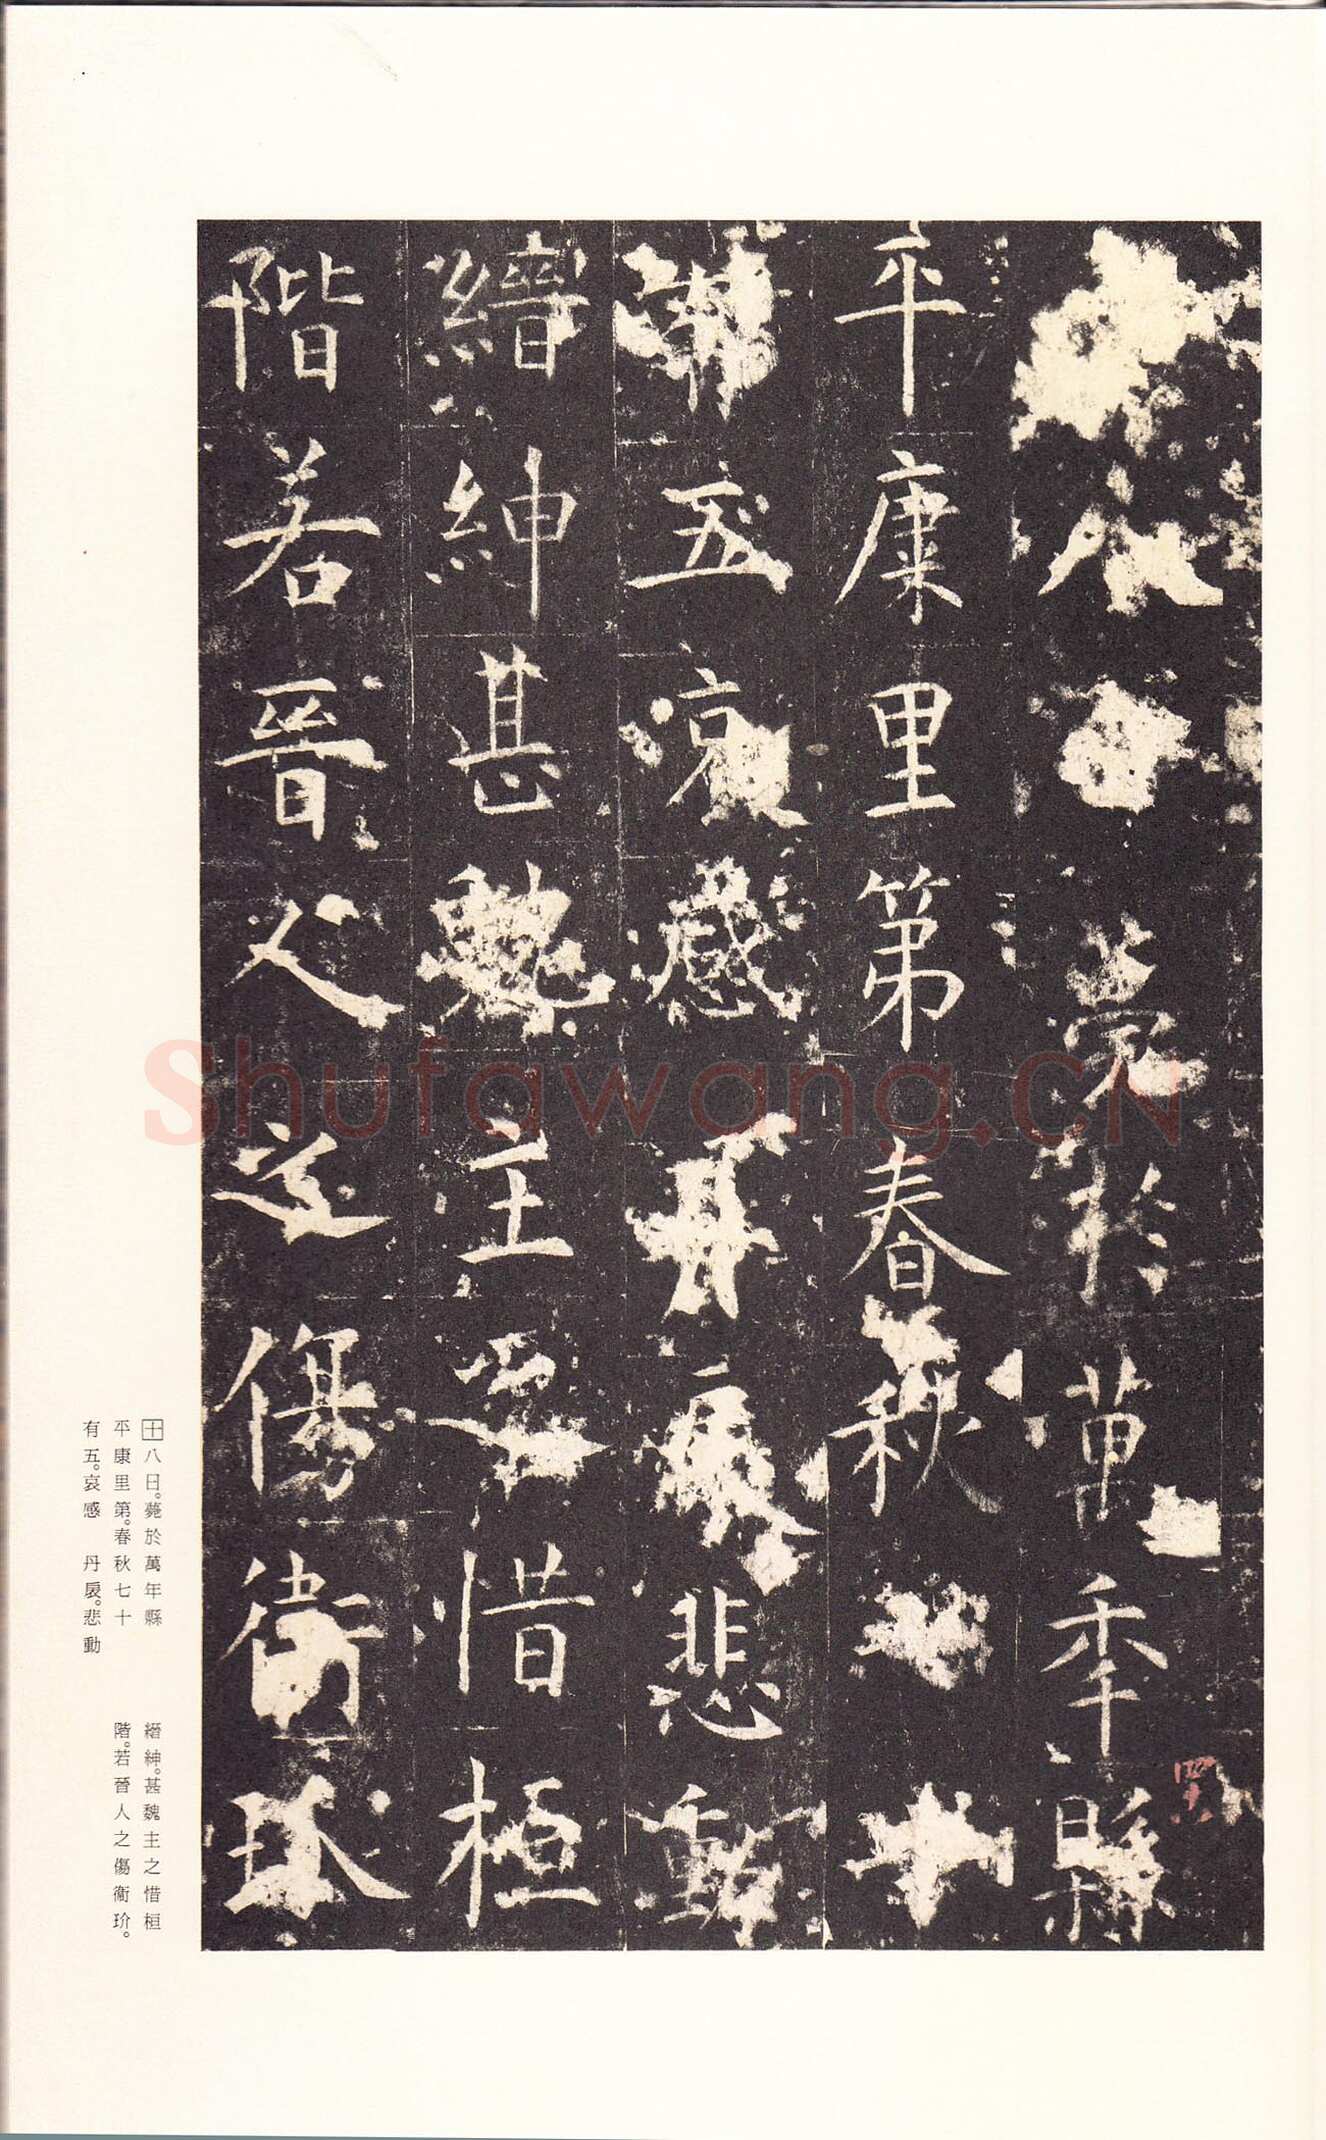 八 薨於萬年縣
平康里第春秋 十
有五哀感丹扆悲動
縉紳甚魏主之惜桓
階若晉人之傷衛玠
十八日。薨於萬年縣
平康里第。春秋七十
有五。哀感 丹扆。悲動
縉紳。甚魏主之惜桓
階。若晉人之傷衛玠。
Shufawang.CN